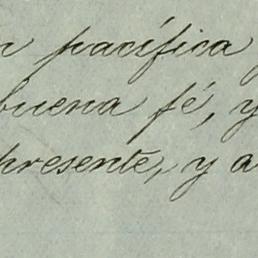 n pacífica y
buena fé, y
presente, y a